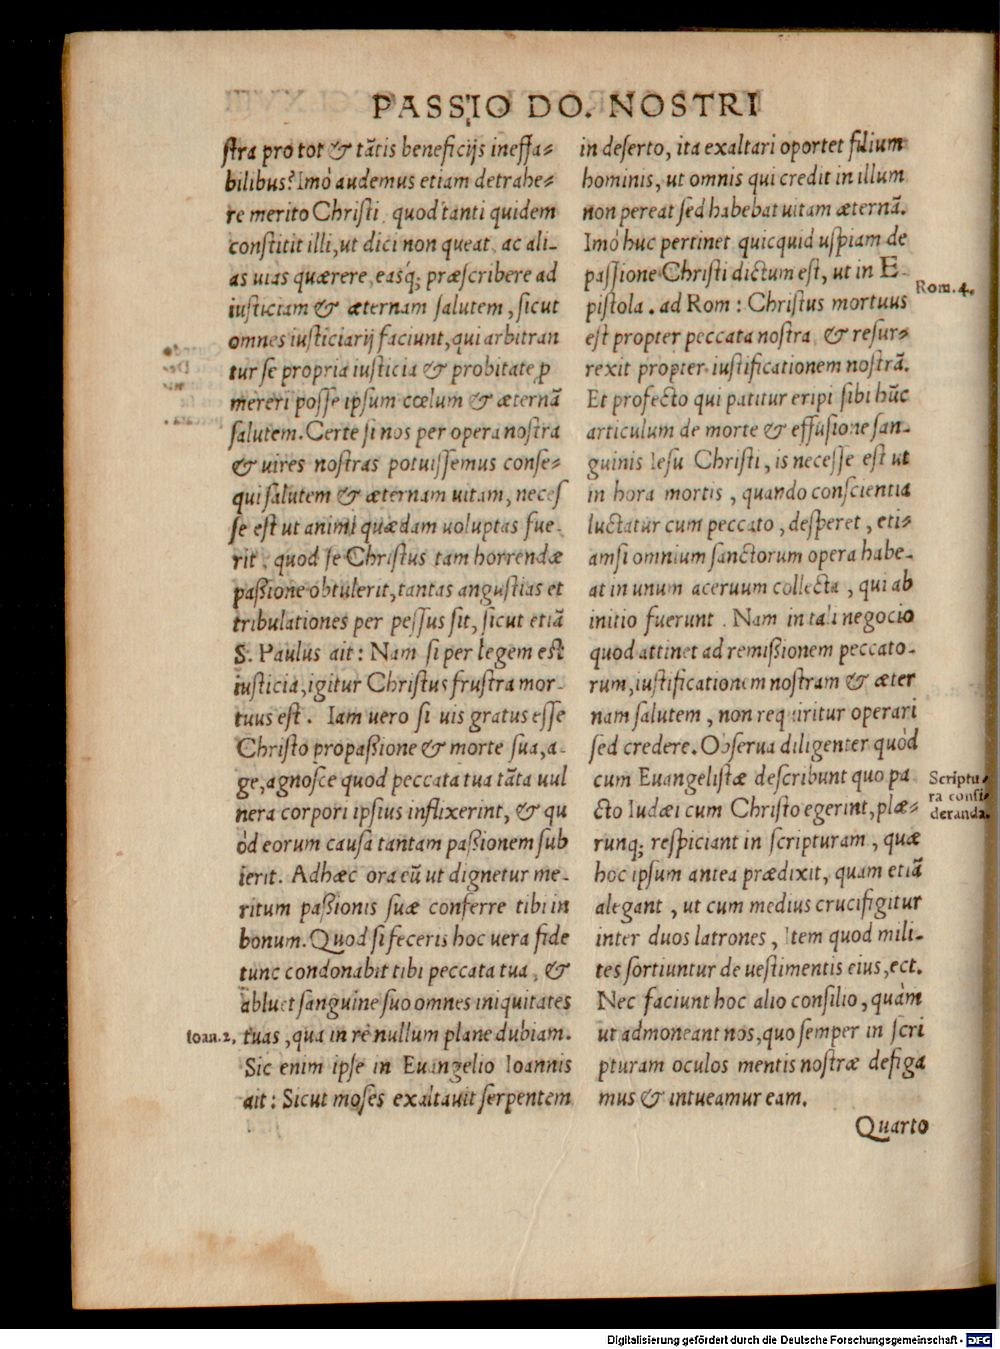 PASSIO DO. NOSTRI
stra pro tot & tātis beneficijs ineffa⸗
bilibus? Imò audemus etiam detrahe⸗
re merito Christi quod tanti quidem
constitit illi, ut dici non queat ac ali-
as uias quærere, easq; præscribere ad
iusticiam & æternam salutem, sicut
omnes iusticiarij faciunt, qui arbitran
tur se propria iusticia & probitate p
mereri posse ipsum cœlum & æternā
salutem. Certe si nos per opera nostra
& uires nostras potuissemus conse⸗
qui salutem & æternam uitam, neces
se est ut animi quædam uoluptas fue-
rit, quod se Christus tam horrendæ
passione obtulerit, tantas angustias et
tribulationes per pessus sit, sicut etiā
S. Paulus ait: Nam si per legem est
iusticia, igitur Christus frustra mor-
tuus est. Iam uero si uis gratus esse
Christo propassione & morte sua, a-
ge, agnosce quod peccata tua tāta uul
nera corpori ipsius inflixerint, & qu
òd eorum causa tantam passionem sub
ierit. Adhæc ora eū ut dignetur me-
ritum passionis suæ conferre tibi in
bonum. Quod si feceris hoc uera fide
tunc condonabit tibi peccata tua, &
abluet sanguine suo omnes iniquitates
Ioan.2, tuas, qua in re nullum plane dubiam.
Sic enim ipse in Euangelio Ioannis
ait: Sicut moses exaltauit serpentem
in deserto, ita exaltari oportet filium
hominis, ut omnis qui credit in illum
non pereat sed habebat uitam æternā.
Imò huc pertinet quicquid uspiam de
passione Christi dictum est, ut in E-
Rom. 4.
pistola. ad Rom: Christus mortuus
est propter peccata nostra & resur⸗
rexit propter iustificationem nostrā.
Et profecto qui patitur eripi sibi hūc
articulum de morte & effusione san-
guinis Iesu Christi, is necesse est ut
in hora mortis, quando conscientia
luctatur cum peccato, desperet, eti⸗
amsi omnium sanctorum opera habe-
at in unum aceruum collecta, qui ab
initio fuerunt. Nam in tali negocio
quod attinet ad remissionem peccato-
rum, iustificationem nostram & æter
nam salutem, non requiritur operari
sed credere. Obserua diligenter quòd
cum Euangelistæ describunt quo pa
Scriptu⸗
ra consi⸗
deranda.
cto Iudæi cum Christo egerint, plæ⸗
runq; respiciant in scripturam, quæ
hoc ipsum antea prædixit, quam etiā
alegant, ut cum medius crucifigitur
inter duos latrones, Item quod mili-
tes sortiuntur de uestimentis eius, ect.
Nec faciunt hoc alio consilio, quàm
ut admoneant nos, quo semper in scri
pturam oculos mentis nostræ defiga
mus & intueamur eam.
Quarto
Digitalisierung gefördert durch die Deutsche Forschungsgemeinschaft - DFG